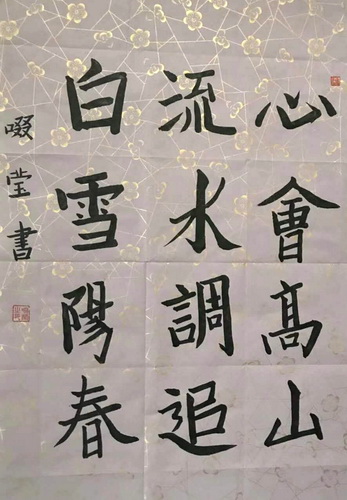 心會高山
流水調追
白雪陽春
啜瑩書